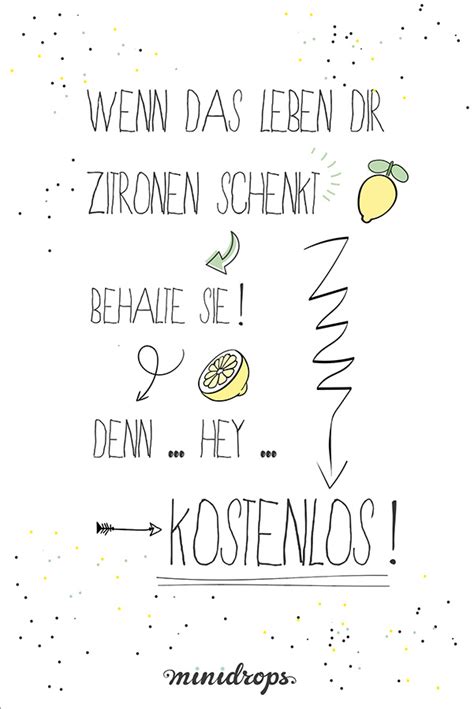 WENN DAS LEBEN DIR
ZITRONEN SCHENKT
BEHALTE SIE!
DENN ... HEY ...
KOSTENLOS!
minidrops.